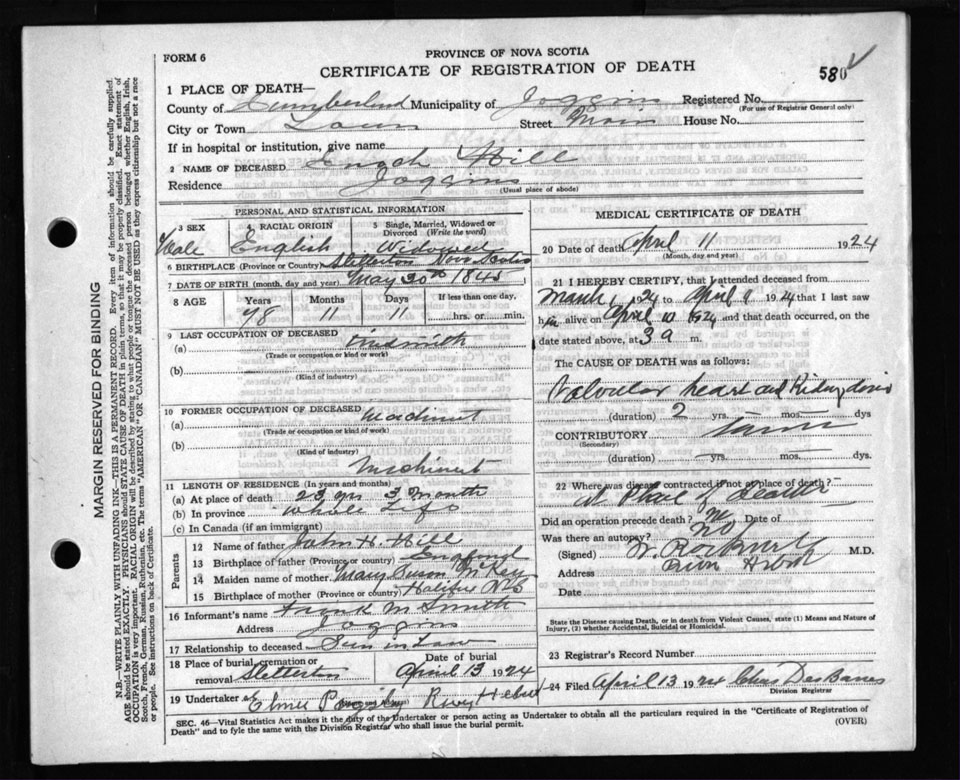 FORM 6
PROVINCE OF NOVA SCOTIA
CERTIFICATE OF REGISTRATION OF DEATH
580
1 PLACE OF DEATH—
County of Cumberland Municipality of Joggins Registered No.
(For use of Registrar General only)
City or Town Town Street Main House No.
If in hospital or institution, give name
2 NAME OF DECEASED Enoch Hill
Residence Joggins
(Usual place of abode)
PERSONAL AND STATISTICAL INFORMATION
3 SEX Male
4 RACIAL ORIGIN English
5 Single, Married, Widowed or Divorced (Write the word) Widowed
6 BIRTHPLACE (Province or Country) Stellerton Nova Scotia
7 DATE OF BIRTH (month, day and year) May 30th 1845
8 AGE Years 78 Months 11 Days 11 If less than one day, hrs. or min.
9 LAST OCCUPATION OF DECEASED
(a) Tinsmith
(Trade or occupation or kind or work)
(b)
(Kind of industry)
10 FORMER OCCUPATION OF DECEASED
(a) Machinist
(Trade or occupation or kind of work)
(b)
(Kind of industry)
Machinist
11 LENGTH OF RESIDENCE (In years and months)
(a) At place of death 23 yrs 3 Month
(b) In province Whole Life
(c) In Canada (if an immigrant)
Parents
12 Name of father John H. Hill
13 Birthplace of father (Province or country) England
14 Maiden name of mother Mary Susan McKay
15 Birthplace of mother (Province or country) Halifax N S
16 Informant's name Frank M Smith
Address Joggins
17 Relationship to deceased Son in Law
18 Place of burial, cremation or removal Stellerton
Date of burial April 13 1924
19 Undertaker Elmer River Hebert
MEDICAL CERTIFICATE OF DEATH
20 Date of death April 11 1924
(Month, day and year)
21 I HEREBY CERTIFY, that I attended deceased from
March 1 1924 to April 9 1924 that I last saw
him alive on April 10 1924 and that death occurred, on the
date stated above, at 3 a m.
The CAUSE OF DEATH was as follows:
Valvular heart and Kidney
(duration) 2 yrs. mos. dys
CONTRIBUTORY
(Secondary)
(duration) yrs. mos. dys
22 Where was disease contracted if not at place of death?
at Place of Death
Did an operation precede death? No Date of
Was there an autopsy? No
(Signed) M.D.
Address River Hebert
Date
State the Disease causing Death, or in death from Violent Causes, state (1) Means and Nature of
Injury, (2) whether Accidental, Suicidal or Homicidal.
23 Registrar's Record Number
24 Filed April 13 1924 Chas DesBarres
Division Registrar
SEC. 46—Vital Statistics Act makes it the duty of the Undertaker or person acting as Undertaker to obtain all the particulars required in the "Certificate of Registration of
Death" and to fyle the same with the Division Registrar who shall issue the burial permit.
(OVER)
MARGIN RESERVED FOR BINDING
N.B.—WRITE PLAINLY WITH UNFADING INK—THIS IS A PERMANENT RECORD. Every item of information should be carefully supplied.
AGE should be stated EXACTLY. PHYSICIANS should STATE CAUSE OF DEATH in plain terms, so that it may be properly classified. Exact statement of
OCCUPATION is very important. RACIAL ORIGIN will be described by stating to what people or tongue the deceased person belonged whether English, Irish,
Scotch, French, German, Russian, Ruthenian, etc. The terms "AMERICAN" OR "CANADIAN" MUST NOT BE USED as they express citizenship but not a race
or people. See instructions on back of Certificate.